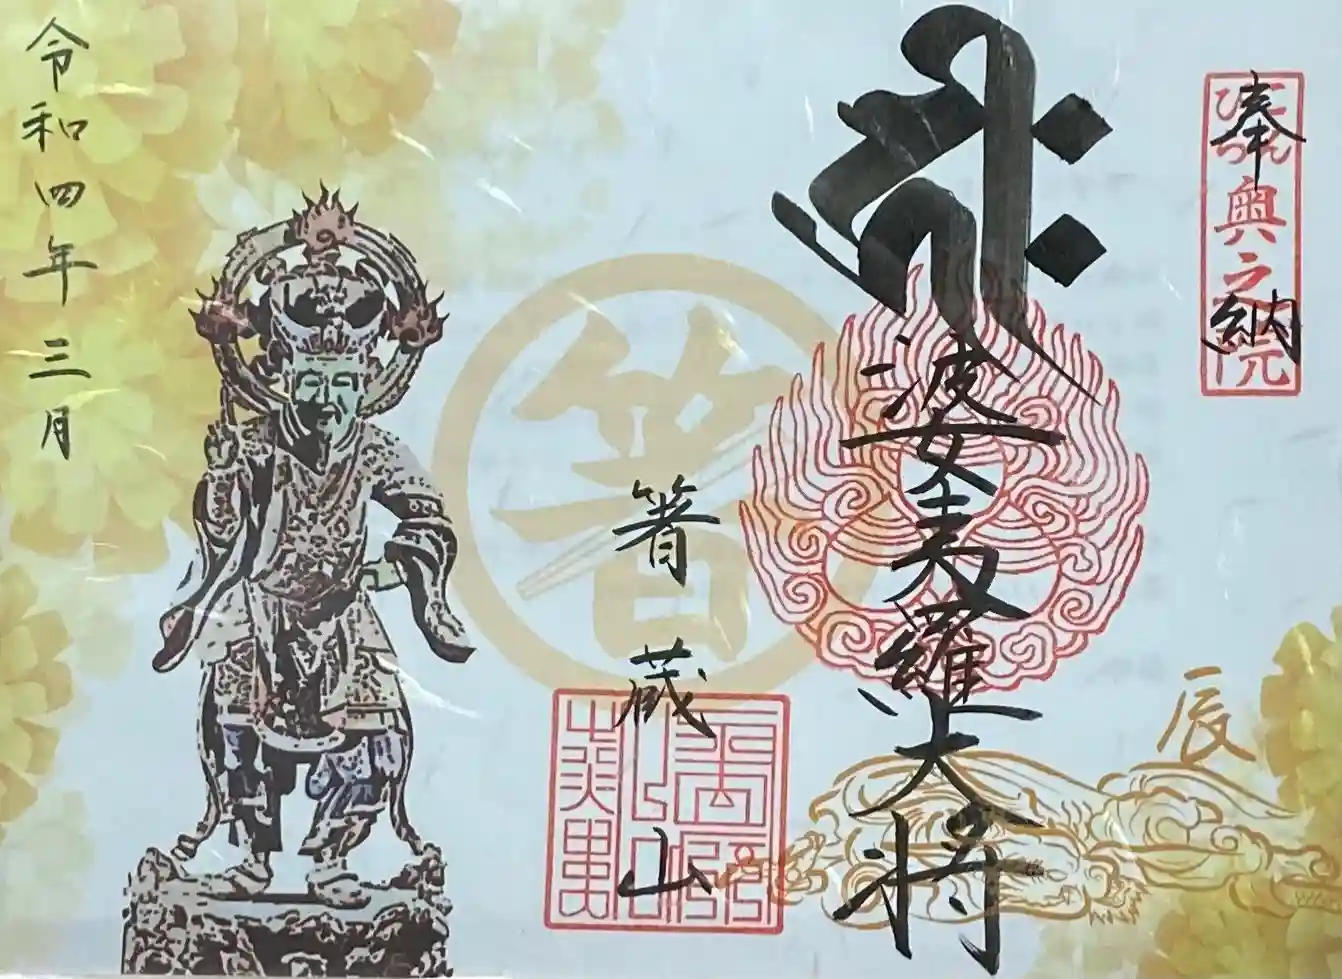 奉納
こんぴら奥之院
婆夷羅大将
辰
箸
箸蔵山
令和四年三月